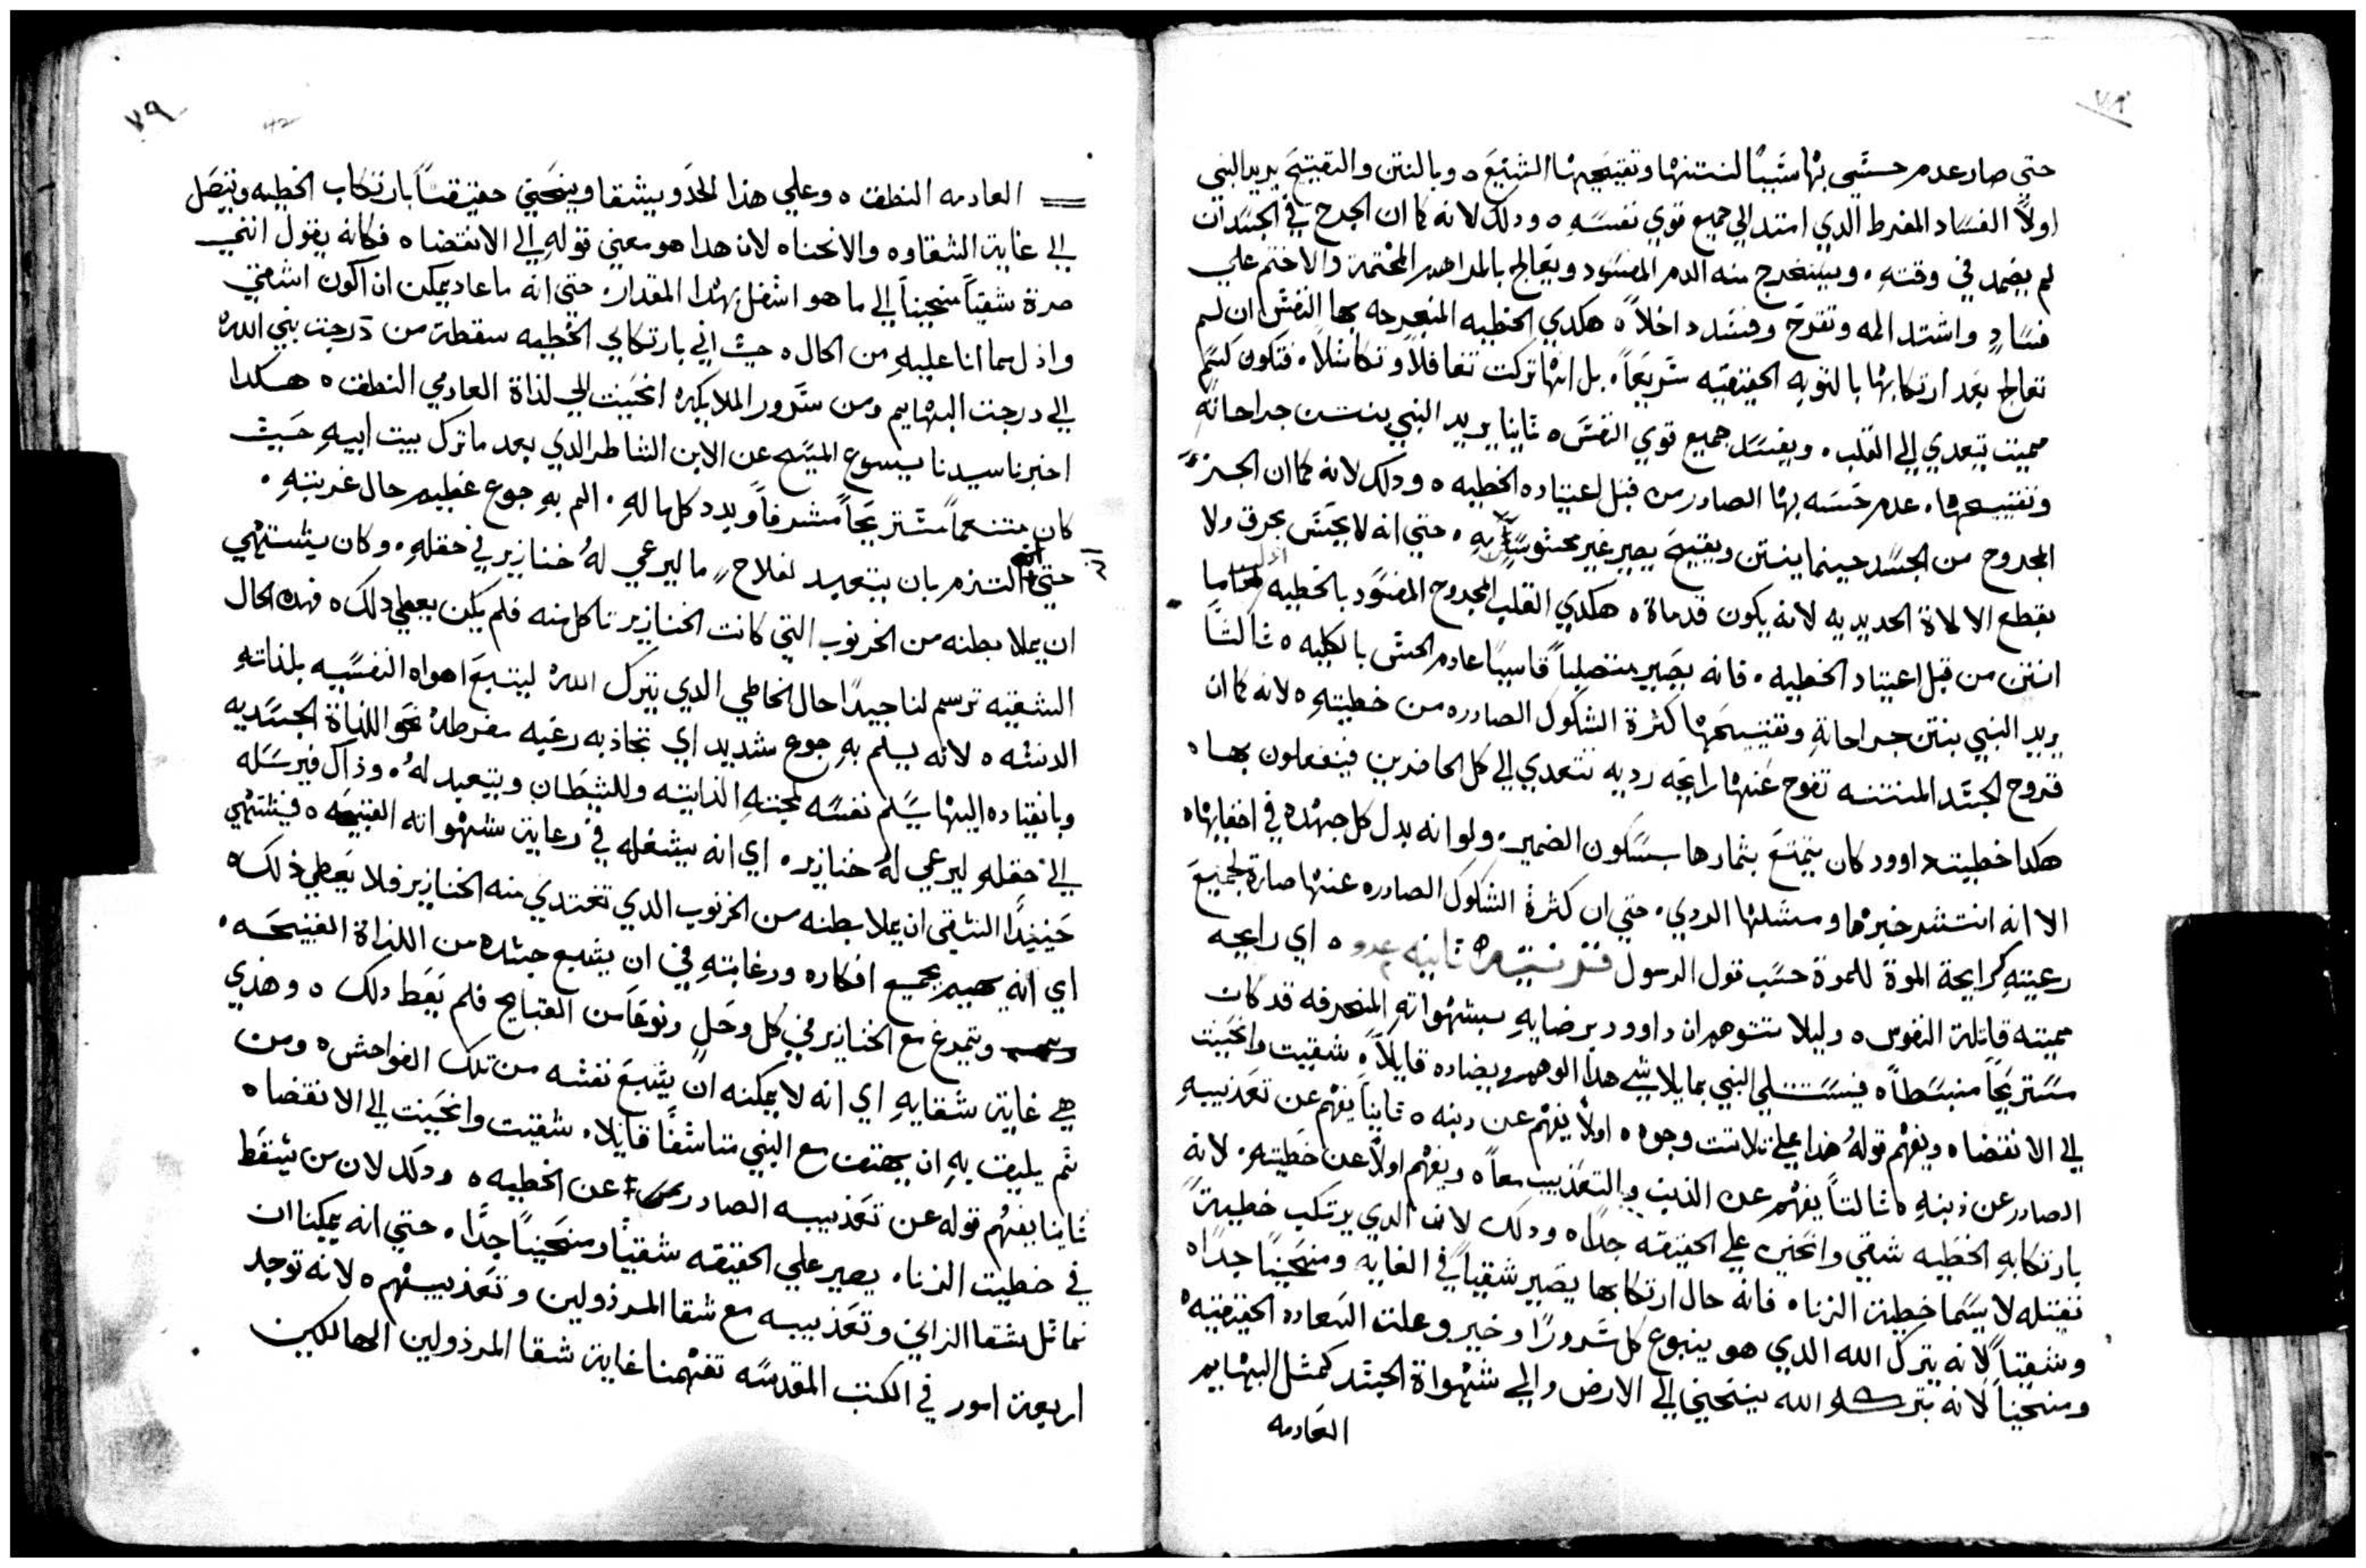 ٧٨
حتي صار عدم حسّى بها سَبَبًا لنتنها وتقييحِها الشنيَع ه وبالنتن والتقييح يريد النبي
اولاً الفسَاد المفرط الدي امتد الي جميع قوي نفسَهِ ه ودلك لانه كما ان الجرح في الجسَد ان
لم يضمد في وقتهِ ه ويستخرج منه الدم المفسَود ويَعَالج بالمراهم المختمة والاختم علي
فسَادٍ واشتد المه وتقرح وفسَد داخلاً ه هكدي الخطيه المنجرحه بها النفسَ ان لم
تعالج بَعَد ارتكابها بالتوبه الحقيقيه سَريَعَاً ه بل انها تركت تغافلاً وتكاسَلاً ه فتكون كسَمٍ
مميت يتعدي الي القلب ه ويفسَد جميع قوي النفسَ ه ثانيا يريد النبي بنتن جراحاته
وتقييحها ه عدم حَسَه بها الصادر من قبل اعتياده الخطيه ه ودلك لانه كما ان الجزءَ
المجروح من الجسَد حينما ينتن ويقيح يصير غير محسَوسًا بهِ ه حتي انه لا يحَسَ بحرق ولا
بقطع الالاة الحديديه لانه يكون قد ماة ه هكدي القلب المجروح المفسَود بالخطيه
انتن من قبل اعتياد الخطيه ه فانه يصَير متصلباً قاسيًا عادم الحسَ بالكليه ه ثالثًا
يريد النبي بنتن جراحاتهِ وتقييَحَها كثرة الشكوك الصادره من خطيتهِ ه لانه كما ان
قروح الجسَد المنتنه تفوح عَنها رايَحَه رديه تتعدي الي كل الحاضرين فينفعلون بها ه
هكدا خطيت داوود كان يتمتَع بثمارها بسَكون الضمير ه ولو انه بدل كل جهده في اخفايها ه
الا انه انتشر خبرها ومسَلها الردي ه حتي ان كثرة الشكوك الصادره عنها صارة لجميَع
رعيتهِ كرايحة الموة للموة حسَب قول الرسول قرنتيه ثانيه عدد ٢ ه اي رايحه
مميته قاتلة النفوس ه وليلا تتوهم ان داوود برضايهِ بشهواتهِ المنحرفه قد كان
مسَتريحَاً منبسَطاً ه فيسَتتلي النبي بما يلاشي هدا الوهم ويضاده قايلاً ه شقيت وانحَنيت
الي الانقضا ه ويفهم قولهُ هدا علي تلاتت وجوه ه اولاً يفهم عن دبنه ه ثانياً يفهم عن تعَذيبهِ
الصادر عن ذنبهِ ه ثالثاً يفهم عن الذنب والتعَذيب معاً ه ويفهم اولاً عن خطيتهِ ه لانه
بارتكابهِ الخطيه شقي وانحَني علي الحقيقه جداً ه ودلك لان الدي يرتكب خطيةً
تقتله لاسيَما خطية الزنا ه فانه حال ارتكابها يصَير شقياً في الغايه ومنحَنيًا جداً ه
وشقياً لانه يترك الله الدي هو ينبوع كل سَرورًا وخير وعلت السَعاده الحقيقيه ه
ومنحنياً لانه بتركه الله ينحني الي الارض والي شهواة الجسَد كمثل البهايم
العَادمه
٧٩
العَادمه النطق ه وعلي هذا الحَد ويشقا وينحَني حقيقتاً بارتكاب الخطيه ويتصَل
الي غاية الشقاوه والانحنا ه لان هدا هو معني قولهِ الي الانقضا ه فكانه يقول انني
صرة شقياً منحنياً الي ما هو اسفل بهدا المقدار ه حتي انه ما عاد يمكن ان اكون اشقي
واذل مما انا عليهِ من الحال ه حيث اني بارتكابي الخطيه سقطة من درجت بني الله
الي درجت البهايم ومن سَرور الملايكه انحَنيت الي لذاة العادمي النطق ه هكدا
اخبرنا سيدنا يسوع المسَيح عن الابن الشاطر الدي بعد ما ترك بيت ابيهِ حَيث
كان متنعماً مسَتريحَاً مشرفاً وبدد كل ماله ه الم بهِ جوع عظيم حال غربتهِ ه
حتي انه التزم بان يتعبد لفلاح ما ليرعي لهُ خنازير في حقلهِ ه وكان يشتهي
ان يملا بطنه من الخرنوب التي كانت الخنازير تاكل منه فلم يكن يعطي دلك ه فهده الحال
الشقيه ترسم لنا جيدًا حال الخاطي الدي يترك الله ليتبَع اهواه النفسَيه بلذاتهِ
الدنسَه ه لانه يسلم بهِ جوع شديد اي تجاذبه رغبه مفرطه نحَو اللذاة الجسَديه
وبانقياده اليها يسَلم نفسَه لمحبتهِ الذاتيه وللشيطَان ويتعبد لهُ ه وذاك فيرسَله
الي حقلهِ ليرعي لهُ خنازير ه اي انه يشغله في رعاية شهواته القبيحَه ه فيشتهي
حَينيدًا الشقى ان يملا بطنه من الخرنوب الدي تغتدي منه الخنازير فلا يَعطي ذلك ه
اي انه يهيم بجميع افكاره ورغايبهِ في ان يشبع جسَده من اللذاة القبيحَه ه
ويتمرغ مع الخنازير في كل وحَلٍ ونوعَاً من القبايح فلم يعَط دلك ه وهذي
هي غاية شقايهِ اي انه لا يمكنه ان يشبَعَ نفسَه من تلك الفواحش ه ومن
ثم يليق بهِ ان يهتف مع النبي متاسَفًا قايلا ه شقيت وانحَنيت الي الانقضا ه
ثانيا يفهم قوله عن تعَذيبه الصادر عن الخطيه ه ودلك لان من يسَقط
في خطيت الزنا ه يصير علي الحقيقه شقياً ومنحَنياً جدًا ه حتي انه يمكنا ان
نماثل شقا الزاني وتعَذيبه مع شقا المرذولين وتعَذيبهم ه لانه توجد
اربعة امور في الكتب المقدسَه تفهمنا غاية شقا المرذولين الهالكين